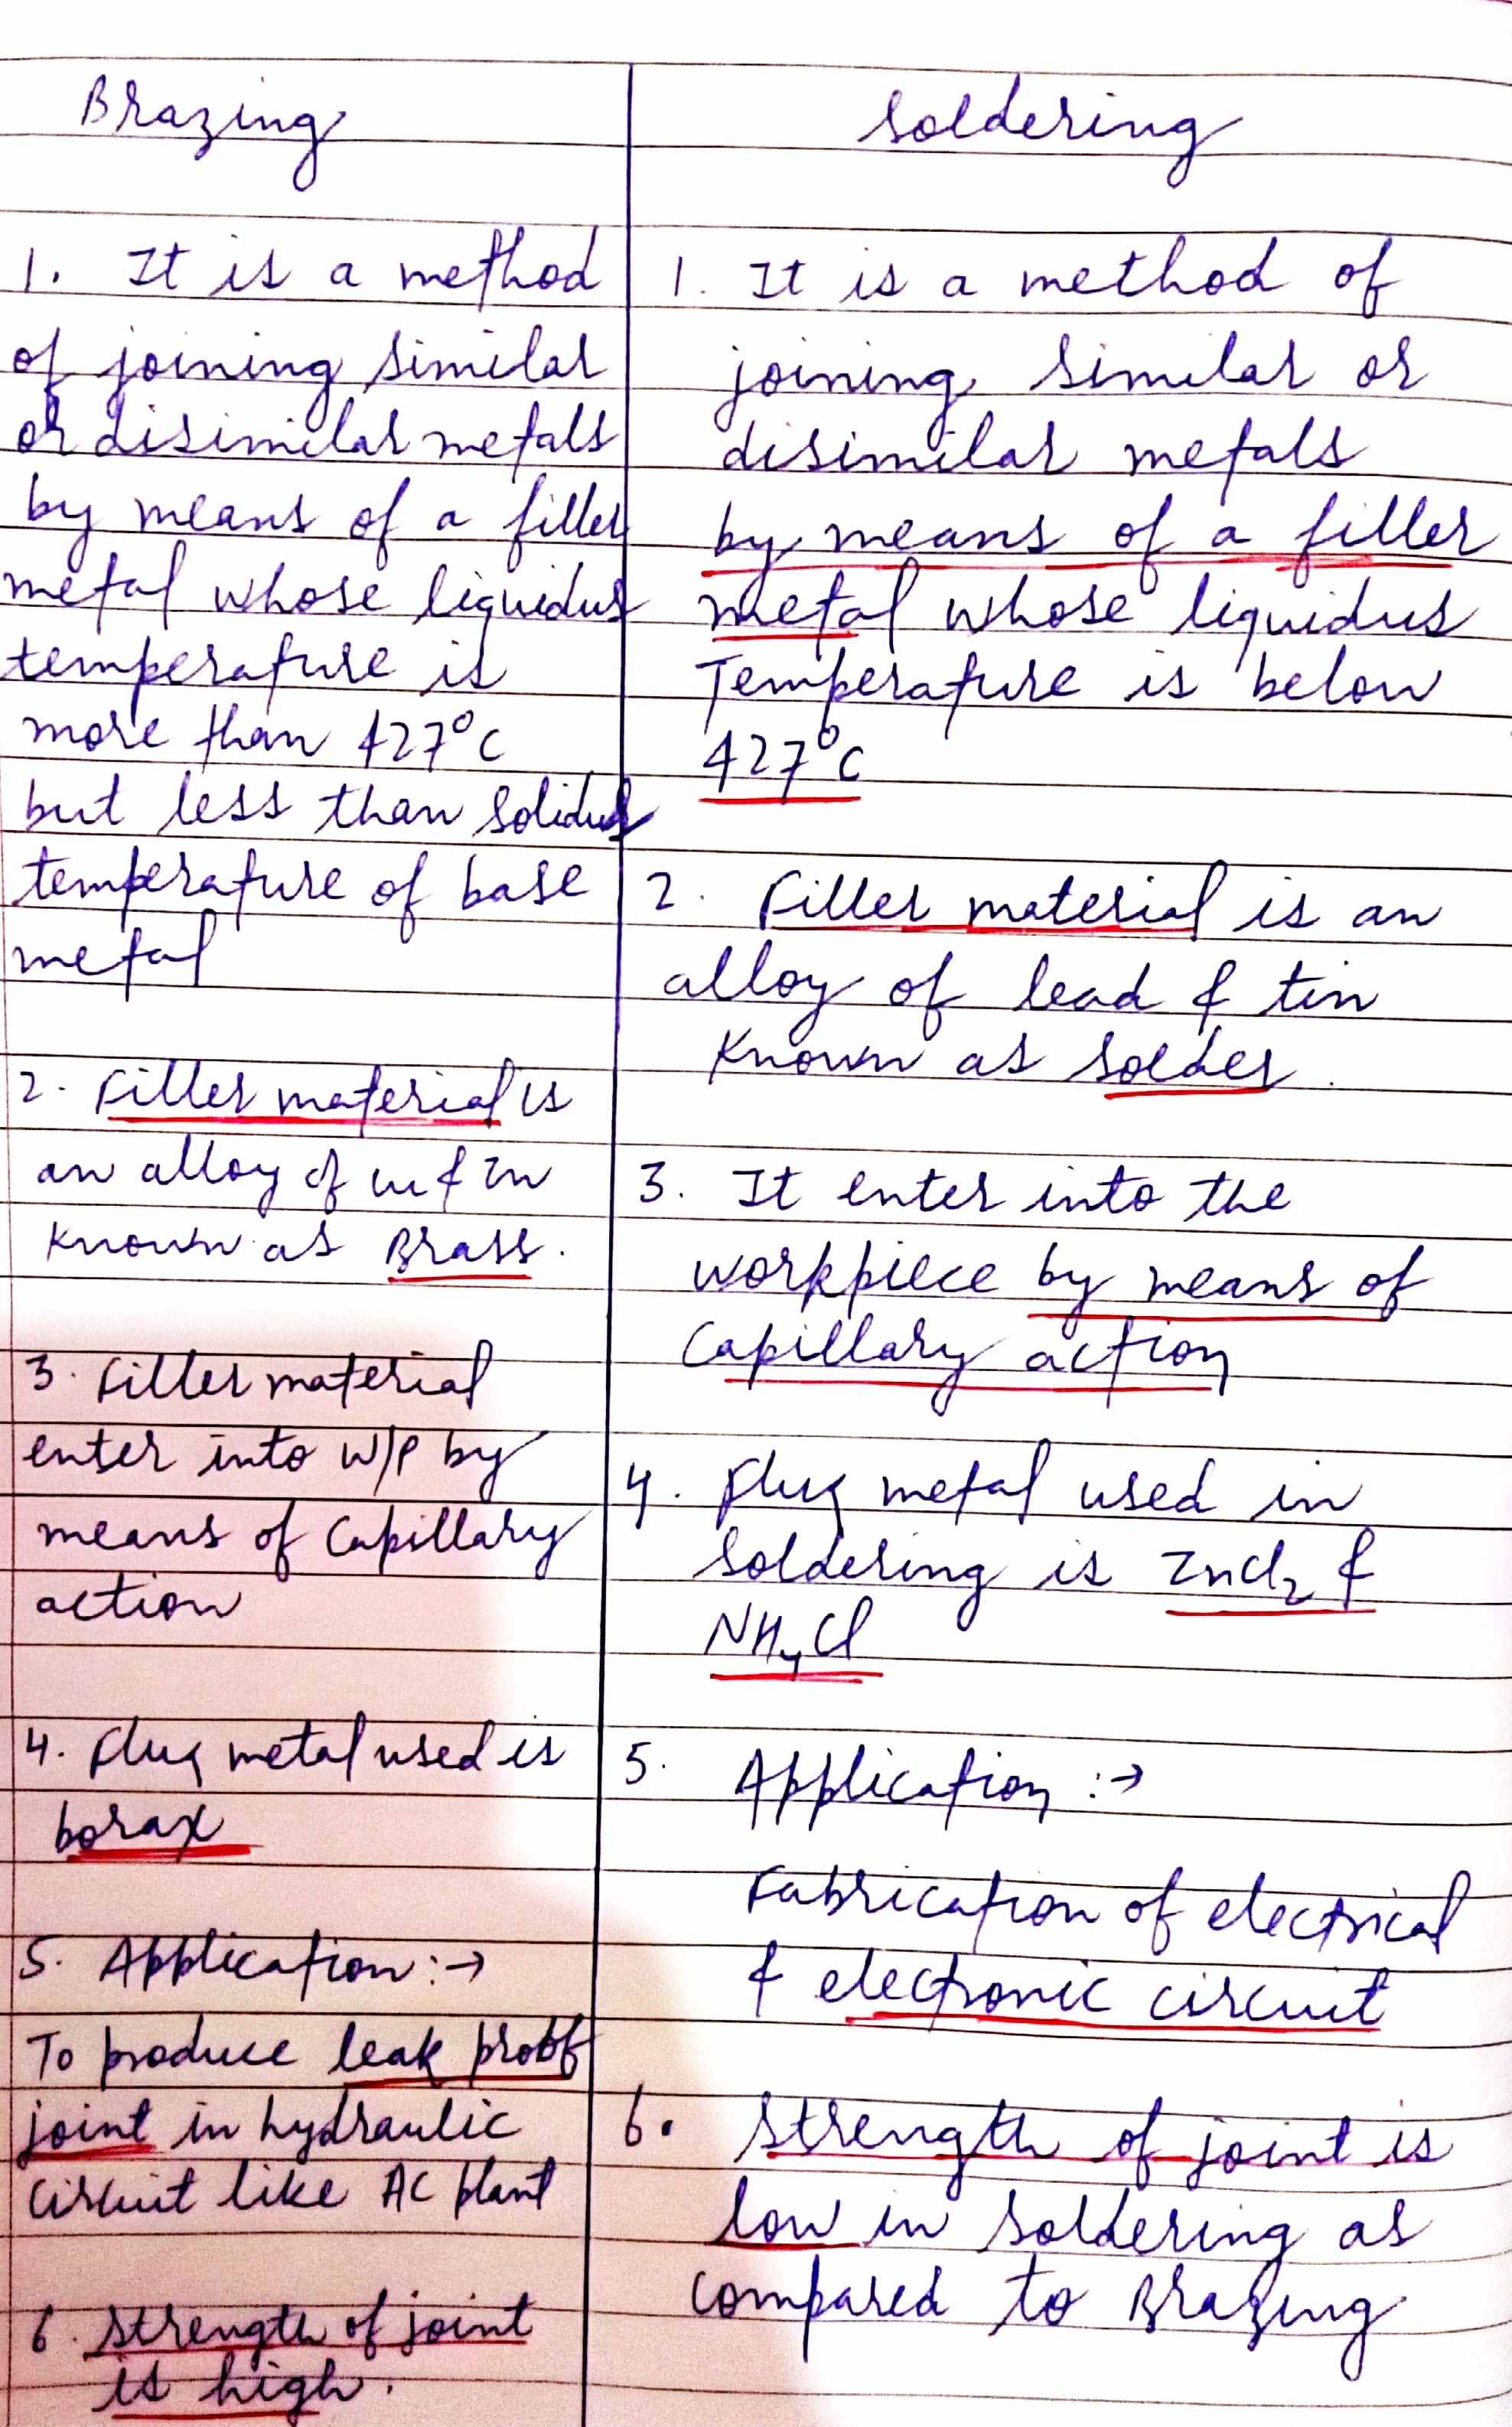 Brazing
1. It is a method
of joining similar
or disimilar metals
by means of a filler
metal whose liquidus
temperature is
more than 427°C
but less than solidus
temperature of base
metal
2. Filler material is
an alloy of Cu & Zn
known as Brass.
3. Filler material
enter into W/P by
means of Capillary
action
4. Flux metal used is
borax
5. Application :→
To produce leak proof
joint in hydraulic
circuit like AC plant
6. strength of joint
is high.
soldering
1. It is a method of
joining similar or
disimilar metals
by means of a filler
metal whose liquidus
Temperature is below
427°C
2. Filler material is an
alloy of lead & tin
known as solder.
3. It enter into the
workpiece by means of
Capillary action
4. Flux metal used in
soldering is ZnCl₂ &
NH₄Cl
5. Application :→
Fabrication of electrical
& electronic circuit
6. strength of joint is
low in soldering as
compared to Brazing